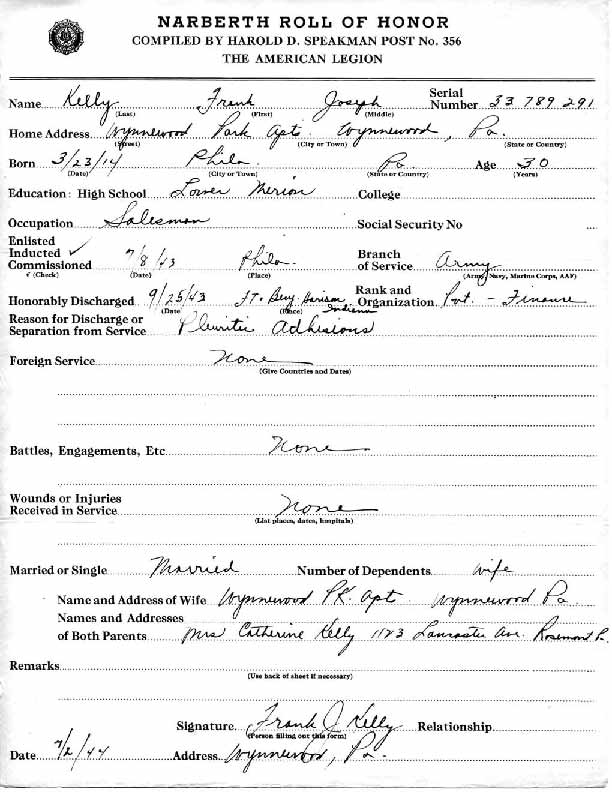 NARBERTH ROLL OF HONOR
COMPILED BY HAROLD D. SPEAKMAN POST No. 356
THE AMERICAN LEGION
Name Kelly Frank Joseph Serial Number 33 789 291
(Last) (First) (Middle)
Home Address Wynnewood Park Apts. Wynnewood, Pa.
(Street) (City or Town) (State or Country)
Born 3/23/14 Phila. Pa. Age 30
(Date) (City or Town) (State or Country) (Years)
Education: High School Lower Merion College
Occupation Salesman Social Security No
Enlisted
Inducted ✓ 7/8/43 Phila. Branch
Commissioned of Service Army
√ (Check) (Date) (Place) (Army, Navy, Marine Corps, AAF)
Honorably Discharged 9/25/43 Ft. Benj. Harrison Indiana Rank and Organization Pvt. - Finance
(Date) (Place)
Reason for Discharge or
Separation from Service Pleuritic Adhesions
Foreign Service None
(Give Countries and Dates)
Battles, Engagements, Etc. None
Wounds or Injuries
Received in Service None
(List places, dates, hospitals)
Married or Single Married Number of Dependents Wife
Name and Address of Wife Wynnewood Pk. Apt. Wynnewood Pa.
Names and Addresses
of Both Parents Mrs Catherine Kelly 1123 Lancaster Ave. Rosemont
Remarks
(Use back of sheet if necessary)
Signature Frank J. Kelly Relationship
(Person filling out this form)
Date 7/2/44 Address Wynnewood, Pa.